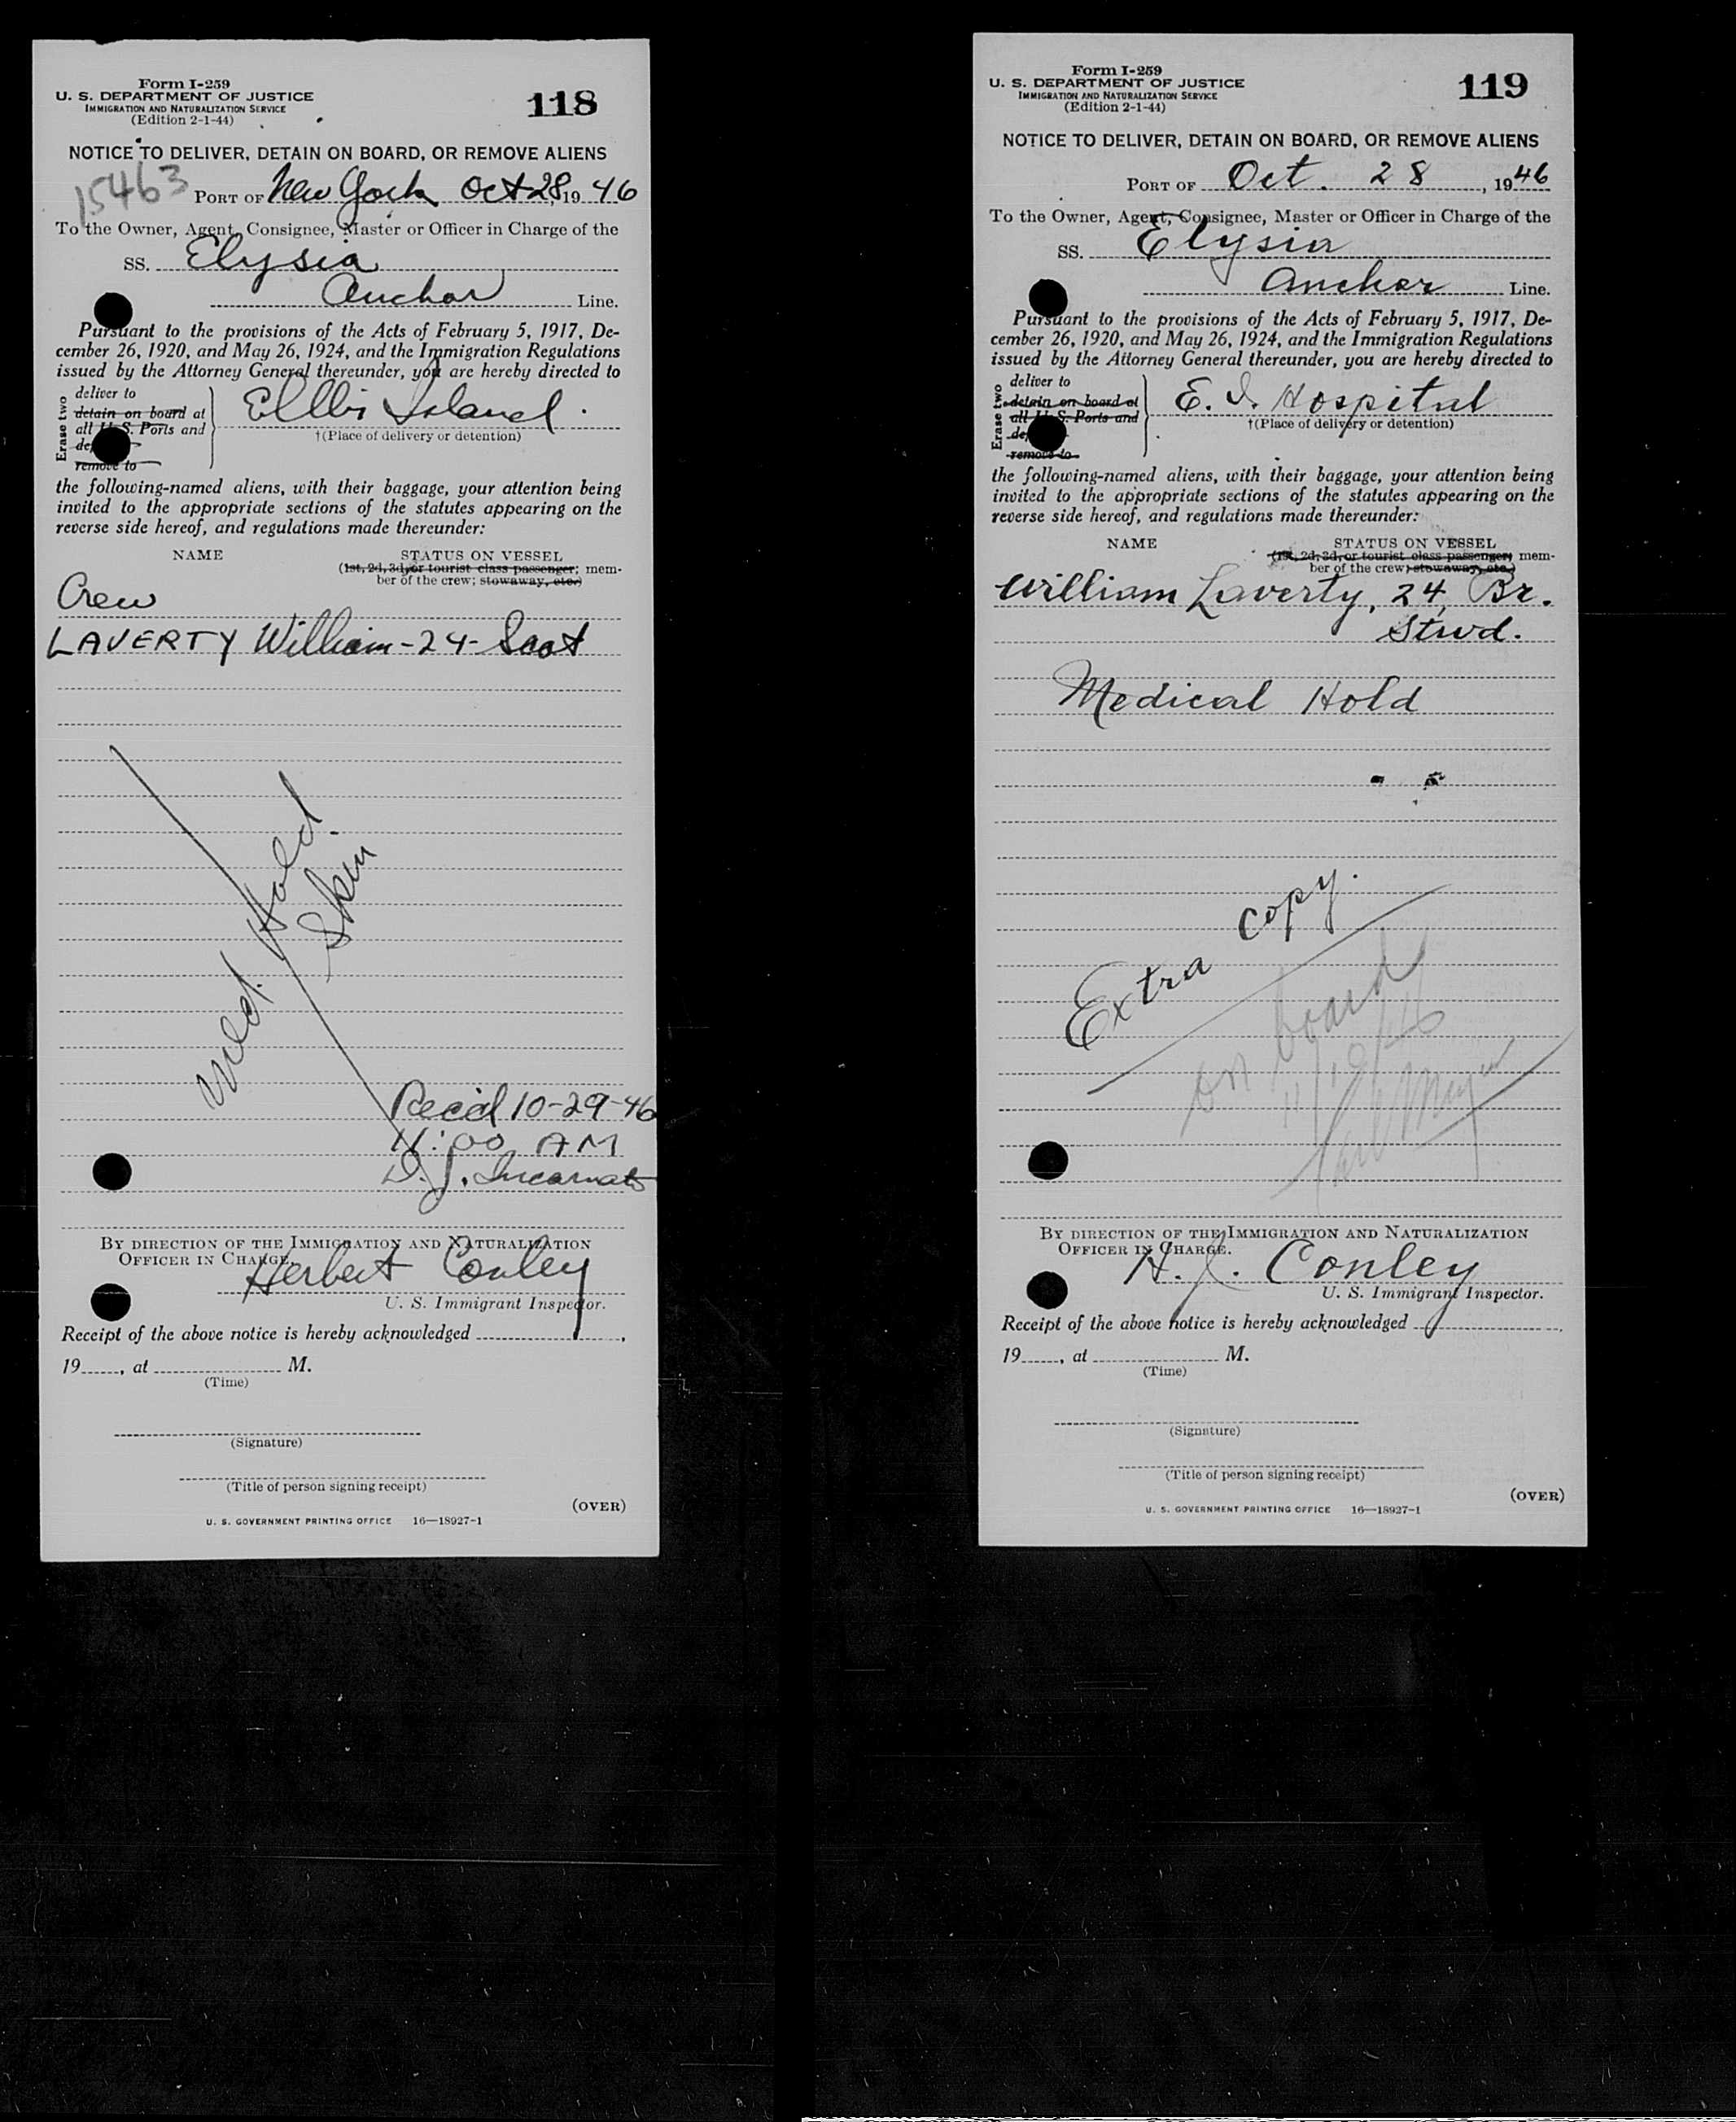 Form I-259
U. S. DEPARTMENT OF JUSTICE
IMMIGRATION AND NATURALIZATION SERVICE
(Edition 2-1-44)
118
NOTICE TO DELIVER, DETAIN ON BOARD, OR REMOVE ALIENS
15463
PORT OF New York Oct 28, 1946
To the Owner, Agent, Consignee, Master or Officer in Charge of the
SS. Elysia
Anchor Line.
Pursuant to the provisions of the Acts of February 5, 1917, De-
cember 26, 1920, and May 26, 1924, and the Immigration Regulations
issued by the Attorney General thereunder, you are hereby directed to
Erase two
deliver to
detain on board at
all U. S. Ports and
de
remove to
Ellis Island.
†(Place of delivery or detention)
the following-named aliens, with their baggage, your attention being
invited to the appropriate sections of the statutes appearing on the
reverse side hereof, and regulations made thereunder:
NAME STATUS ON VESSEL
(1st, 2d, 3d, or tourist class passenger; mem-
ber of the crew; stowaway, etc.)
Crew
LAVERTY William-24-Scot
Med. Hold.
Skin
Rec'd 10-29-46
11:00 AM
D. J. Incarnato
BY DIRECTION OF THE IMMIGRATION AND NATURALIZATION
OFFICER IN CHARGE.
Herbert Conley
U. S. Immigrant Inspector.
Receipt of the above notice is hereby acknowledged ,
19 , at M.
(Time)
(Signature)
(Title of person signing receipt)
(OVER)
U. S. GOVERNMENT PRINTING OFFICE 16—18927-1
Form I-259
U. S. DEPARTMENT OF JUSTICE
IMMIGRATION AND NATURALIZATION SERVICE
(Edition 2-1-44)
119
NOTICE TO DELIVER, DETAIN ON BOARD, OR REMOVE ALIENS
PORT OF Oct. 28, 1946
To the Owner, Agent, Consignee, Master or Officer in Charge of the
SS. Elysia
Anchor Line.
Pursuant to the provisions of the Acts of February 5, 1917, De-
cember 26, 1920, and May 26, 1924, and the Immigration Regulations
issued by the Attorney General thereunder, you are hereby directed to
Erase two
deliver to
detain on board at
all U. S. Ports and
de
remove to
E. I. Hospital
†(Place of delivery or detention)
the following-named aliens, with their baggage, your attention being
invited to the appropriate sections of the statutes appearing on the
reverse side hereof, and regulations made thereunder:
NAME STATUS ON VESSEL
(1st, 2d, 3d, or tourist class passenger; mem-
ber of the crew; stowaway, etc.)
William Laverty, 24, Br.
Stwd.
Medical Hold
Extra copy.
on board
BY DIRECTION OF THE IMMIGRATION AND NATURALIZATION
OFFICER IN CHARGE.
H. J. Conley
U. S. Immigrant Inspector.
Receipt of the above notice is hereby acknowledged ,
19 , at M.
(Time)
(Signature)
(Title of person signing receipt)
(OVER)
U. S. GOVERNMENT PRINTING OFFICE 16—18927-1